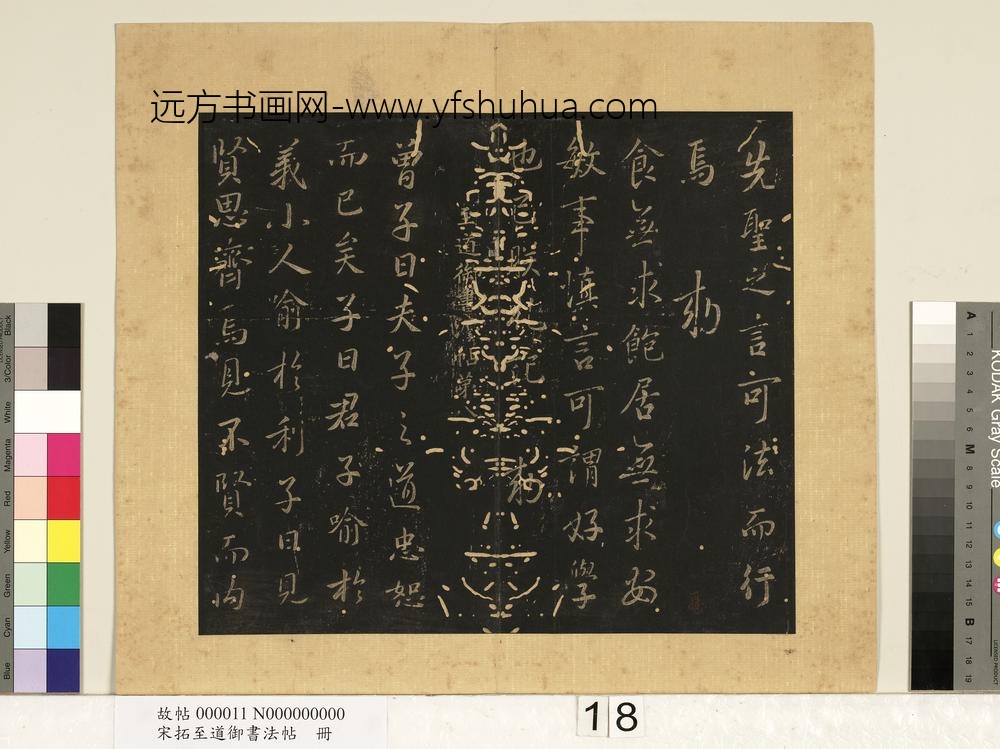 远方书画网-www.yfshuhua.com
先聖之言可法而行
焉 勅
食無求飽居無求安
敏事慎言可謂好學
也已 勅
至道御書法帖第八
曾子曰夫子之道忠恕
而已矣子曰君子喻於
義小人喻於利子曰見
賢思齊焉見不賢而内
Black
3/Color
White
Magenta
Red
Yellow
Green
Cyan
Blue
KODAK Gray Scale
A 1 2 3 4 5 6 M 8 9 10 11 12 13 14 15 B 17 18 19
故帖 000011 N000000000
宋拓至道御書法帖 冊
18